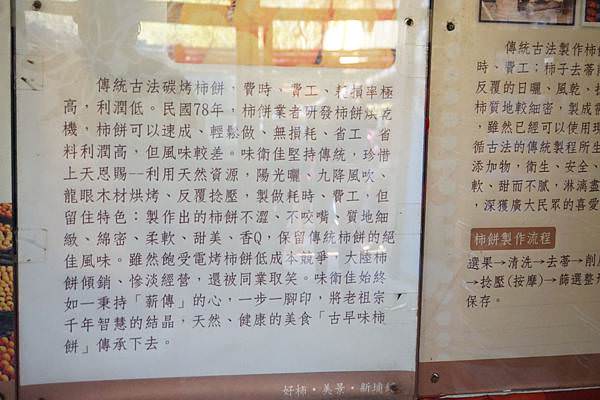 傳統古法碳烤柿餅，費時、費工、耗損率極
高，利潤低。民國78年，柿餅業者研發柿餅烘乾
機，柿餅可以速成、輕鬆做、無損耗、省工、省
料利潤高，但風味較差。味衛佳堅持傳統，珍惜
上天恩賜--利用天然資源，陽光曬、九降風吹、
龍眼木材烘烤、反覆捻壓，製做耗時、費工，但
留住特色：製作出的柿餅不澀、不咬嘴、質地細
緻、綿密、柔軟、甜美、香Q，保留傳統柿餅的絕
佳風味。雖然飽受電烤柿餅低成本競爭，大陸柿
餅傾銷、慘淡經營，還被同業取笑。味衛佳始終
如一秉持「薪傳」的心，一步一腳印，將老祖宗
千年智慧的結晶，天然、健康的美食「古早味柿
餅」傳承下去。
好柿・美景・新埔
傳統古法製作柿
時、費工；柿子去蒂
反覆的日曬、風乾、
柿質地較細密，製成
，雖然已經可以使用現
循古法的傳統製程所生
添加物，衛生、安全、
軟、甜而不膩，淋漓盡
，深獲廣大民眾的喜愛
柿餅製作流程
選果→清洗→去蒂→削
→捻壓(按摩)→篩選整
保存。